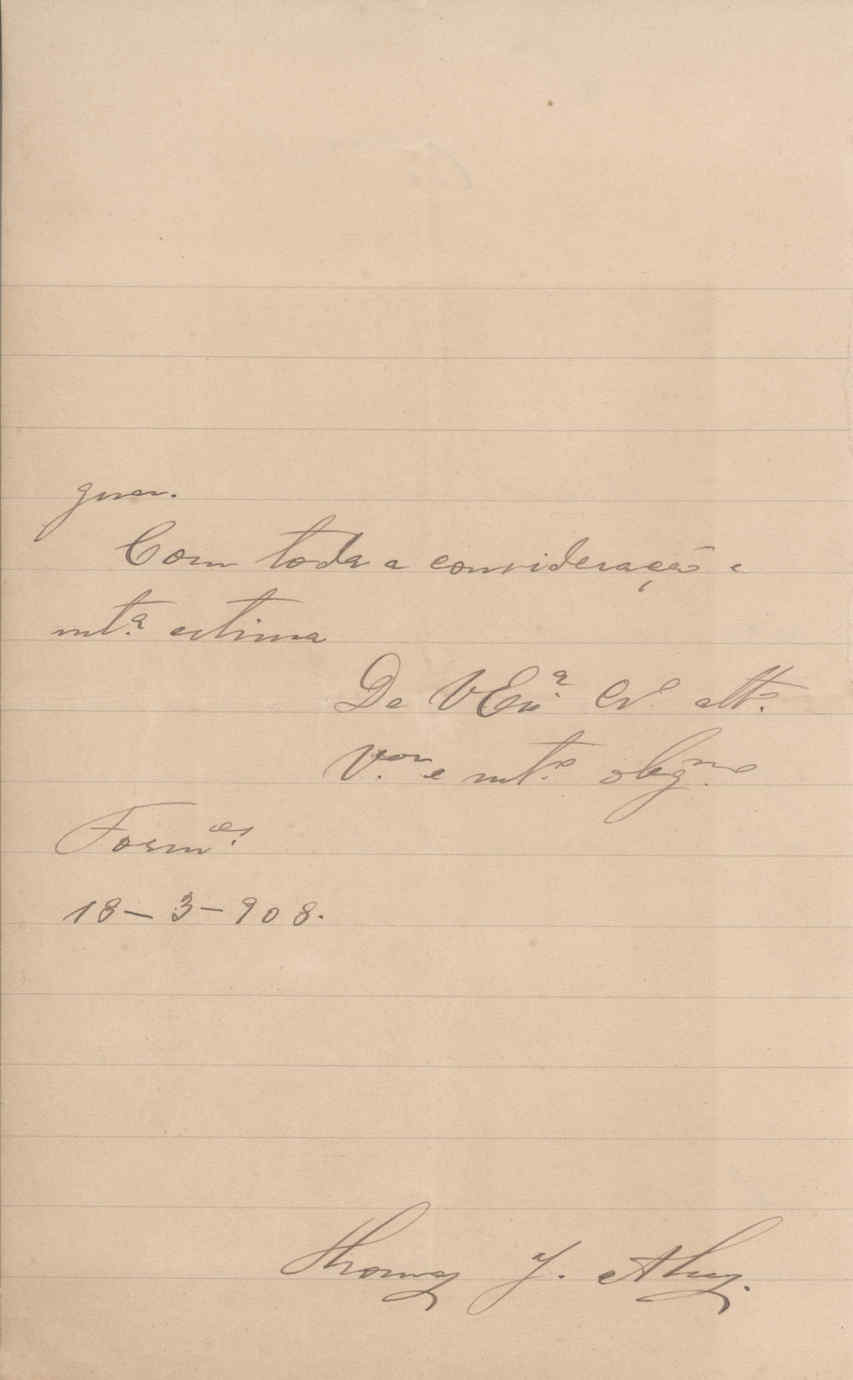 Com toda a consideração e
mt.ª estima
De V Ex.ª Cr.º att.º
V.or e mt.º obgº
Form.es
18 — 3 — 908.
Thomaz J. Alvz.